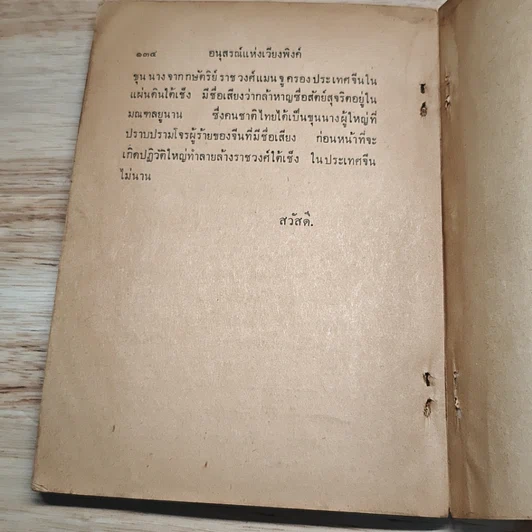 ๑๓๕ อนุสรณ์แห่งเวียงพิงค์
ขุนนางจากกษัตริย์ราชวงศ์แมนจูครองประเทศจีนใน
แผ่นดินใต้เช็ง มีชื่อเสียงว่ากล้าหาญซื่อสัตย์สุจริตอยู่ใน
มณฑลยูนาน ซึ่งคนชาติไทยได้เป็นขุนนางผู้ใหญ่ที่
ปราบปรามโจรผู้ร้ายของจีนที่มีชื่อเสียง ก่อนหน้าที่จะ
เกิดปฏิวัติใหญ่ทำลายล้างราชวงศ์ใต้เช็ง ในประเทศจีน
ไม่นาน
สวัสดี.